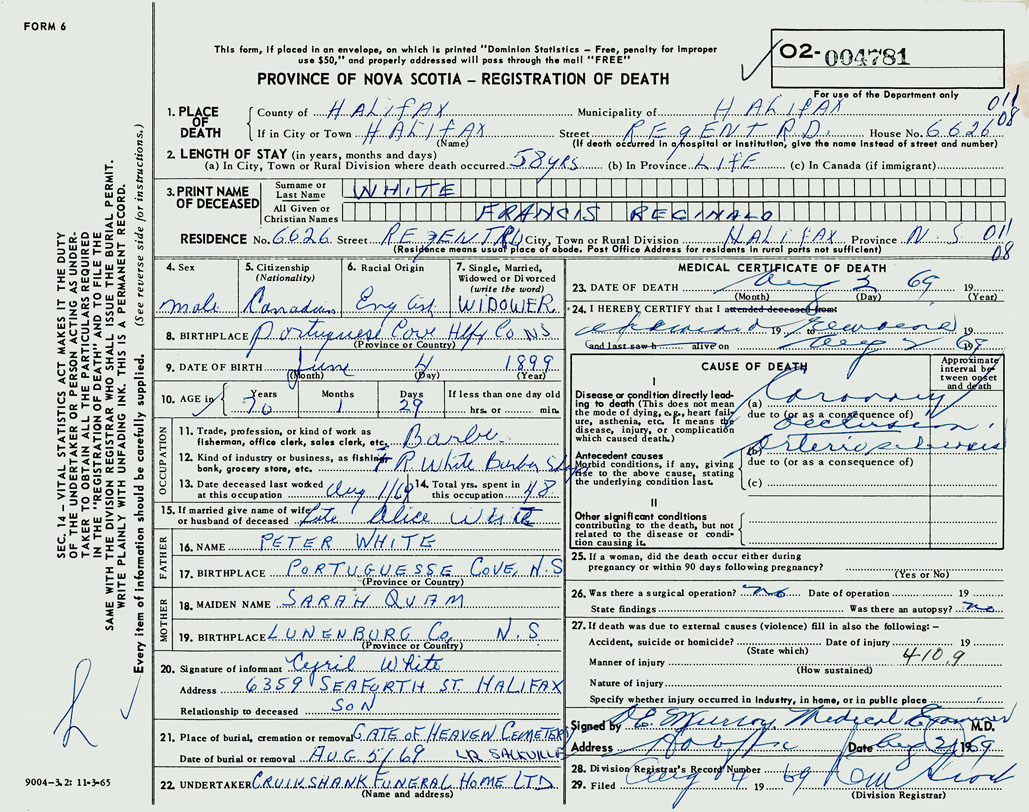 FORM 6
This form, if placed in an envelope, on which is printed "Dominion Statistics – Free, penalty for improper
use $50," and properly addressed will pass through the mail "FREE"
PROVINCE OF NOVA SCOTIA – REGISTRATION OF DEATH
02- 004781
For use of the Department only
011
08
1. PLACE OF DEATH
County of HALIFAX Municipality of HALIFAX
If in City or Town HALIFAX Street REGENT RD. House No. 6626
(Name) (If death occurred in a hospital or institution, give the name instead of street and number)
2. LENGTH OF STAY (in years, months and days)
(a) In City, Town or Rural Division where death occurred 58 yrs (b) In Province LIFE (c) In Canada (if immigrant)
3. PRINT NAME OF DECEASED
Surname or Last Name WHITE
All Given or Christian Names FRANCIS REGINALD
RESIDENCE No. 6626 Street REGENT RD City, Town or Rural Division HALIFAX Province N.S 011
(Residence means usual place of abode. Post Office Address for residents in rural parts not sufficient)
08
4. Sex male
5. Citizenship (Nationality) Canadian
6. Racial Origin English
7. Single, Married, Widowed or Divorced (write the word) WIDOWER
8. BIRTHPLACE Portuguese Cove Hfx Co NS
(Province or Country)
9. DATE OF BIRTH June 4 1899
(Month) (Day) (Year)
10. AGE in Years 70 Months 1 Days 29 If less than one day old
hrs. or min.
OCCUPATION
11. Trade, profession, or kind of work as
fisherman, office clerk, sales clerk, etc. Barber
12. Kind of industry or business, as fishing,
bank, grocery store, etc. R. White Barber Shop
13. Date deceased last worked
at this occupation Aug 1/69
14. Total yrs. spent in
this occupation 48
15. If married give name of wife
or husband of deceased Late Alice White
FATHER
16. NAME PETER WHITE
17. BIRTHPLACE PORTUGUESSE COVE, N.S
(Province or Country)
MOTHER
18. MAIDEN NAME SARAH QUAM
19. BIRTHPLACE LUNENBURG Co, N.S
(Province or Country)
20. Signature of informant Cyril White
Address 6359 SEAFORTH ST. HALIFAX
Relationship to deceased SON
21. Place of burial, cremation or removal GATE OF HEAVEN CEMETERY
Date of burial or removal AUG 5/69 LR. SACKVILLE
22. UNDERTAKER CRUIKSHANK FUNERAL HOME LTD.
(Name and address)
MEDICAL CERTIFICATE OF DEATH
23. DATE OF DEATH Aug 2 69 19
(Month) (Day) (Year)
24. I HEREBY CERTIFY that I attended deceased from:
19 to 19
and last saw h alive on Aug 2 1969
CAUSE OF DEATH
Approximate interval between onset and death
I
Disease or condition directly leading
to death (This does not mean
the mode of dying, e.g., heart failure,
asthenia, etc. It means the
disease, injury, or complication
which caused death.)
(a) Coronary
due to (or as a consequence of)
occlusion
Antecedent causes
Morbid conditions, if any, giving
rise to the above cause, stating
the underlying condition last.
(b) arteriosclerosis
due to (or as a consequence of)
(c)
II
Other significant conditions
contributing to the death, but not
related to the disease or condition
causing it.
25. If a woman, did the death occur either during
pregnancy or within 90 days following pregnancy?
(Yes or No)
26. Was there a surgical operation? no Date of operation 19
State findings Was there an autopsy? no
27. If death was due to external causes (violence) fill in also the following: –
Accident, suicide or homicide? Date of injury 19
(State which) 410.9
Manner of injury
(How sustained)
Nature of injury
Specify whether injury occurred in industry, in home, or in public place
Signed by Medical Examiner M.D.
Address Halifax Date Aug 2/1969
28. Division Registrar's Record Number
29. Filed Aug 4 19 69
(Division Registrar)
SEC. 14 – VITAL STATISTICS ACT MAKES IT THE DUTY
OF THE UNDERTAKER OR PERSON ACTING AS UNDERTAKER
TO OBTAIN ALL THE PARTICULARS REQUIRED
IN THE "REGISTRATION OF DEATH" AND TO FILE THE
SAME WITH THE DIVISION REGISTRAR WHO SHALL ISSUE THE BURIAL PERMIT.
WRITE PLAINLY WITH UNFADING INK. THIS IS A PERMANENT RECORD.
Every item of information should be carefully supplied. (See reverse side for instructions.)
9004-3.2: 11-3-65